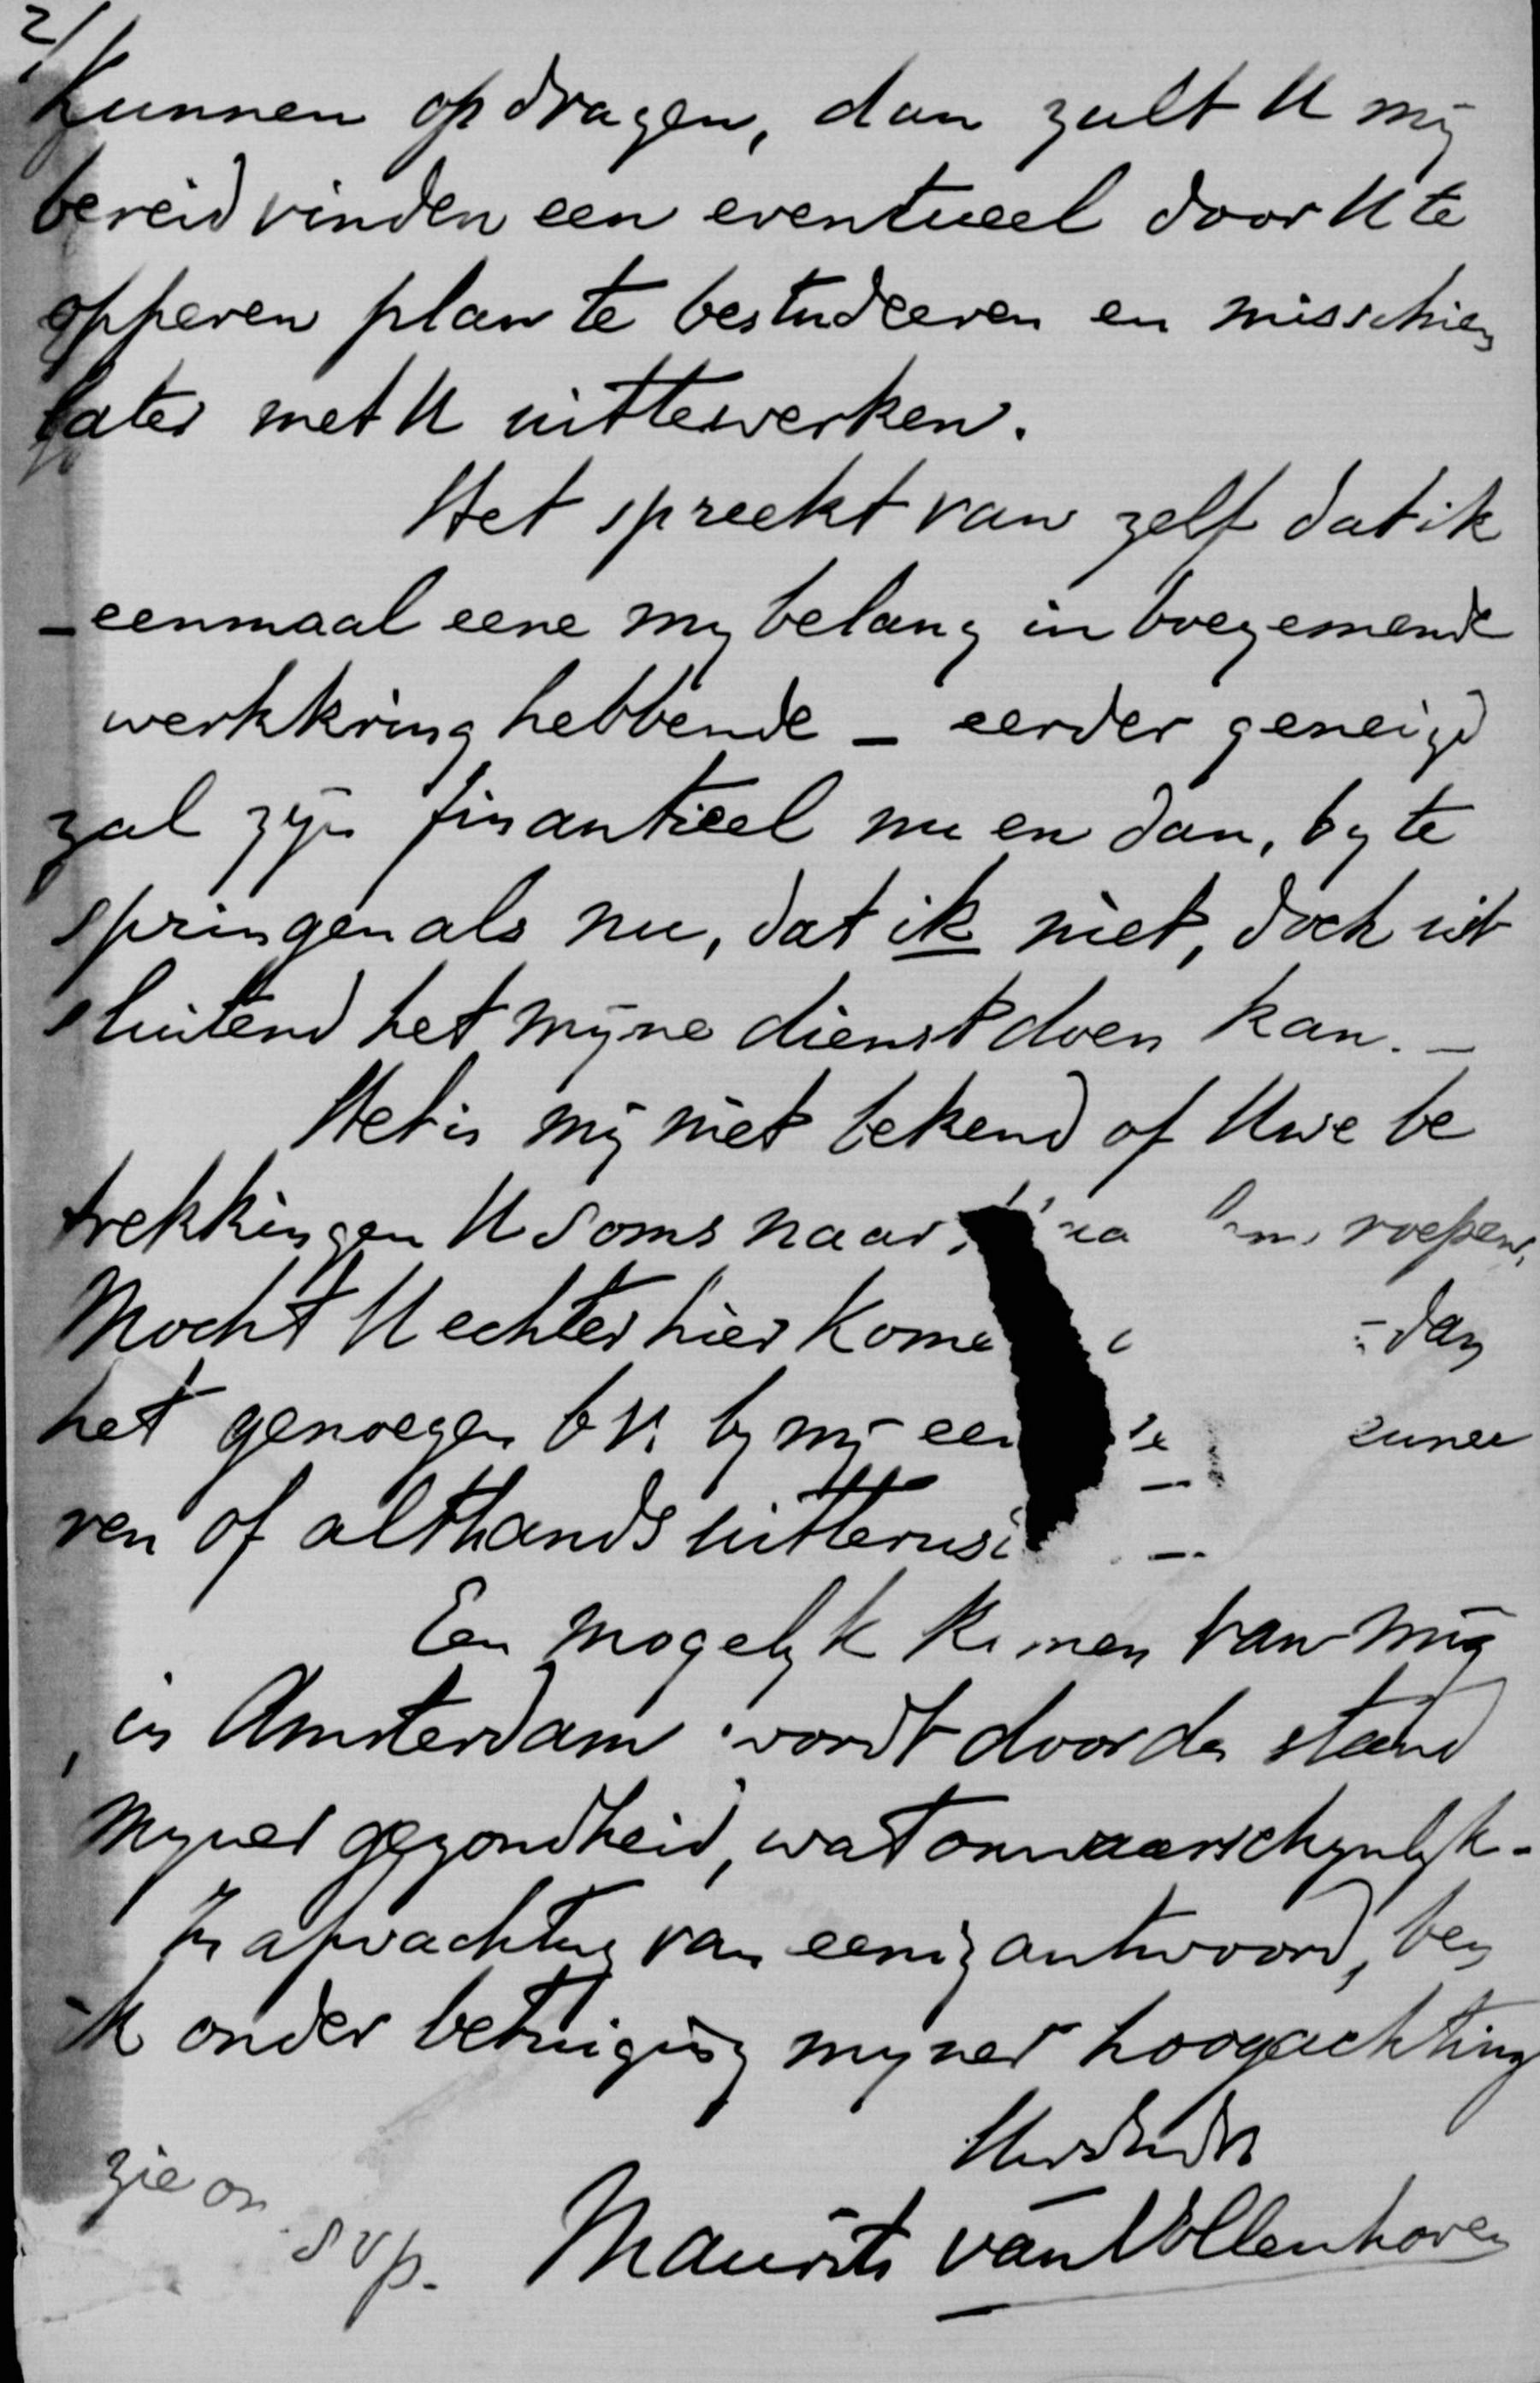 2/
Kunnen opdragen, dan zult U mij
bereid vinden een eventueel door U te
opperen plan te bestudeeren en misschien
later met U uittewerken.
Het spreekt van zelf dat ik
- eenmaal eene mij belang in boezemende
werkkring hebbende - eerder geneigd
zal zijn finantieel nu en dan, by te
springen als nu, dat ik niet, doch uit
sluitend het mijne dienst doen kan. -
Het is mij niet bekend of Uwe be
trekkingen U soms naar roepen.
Mocht U echter hier kome dan
het genoegen bv. by mij een
ren of althands uitterus
Een mogelyk komen van mij
in Amsterdam wordt door de stand
myner gezondheid, wat onwaarschynlyk.
In afwachting van eenig antwoord, ben
ik onder betuiging myner hoogachting
Maurits van Vollenhoven
zie om
svp.